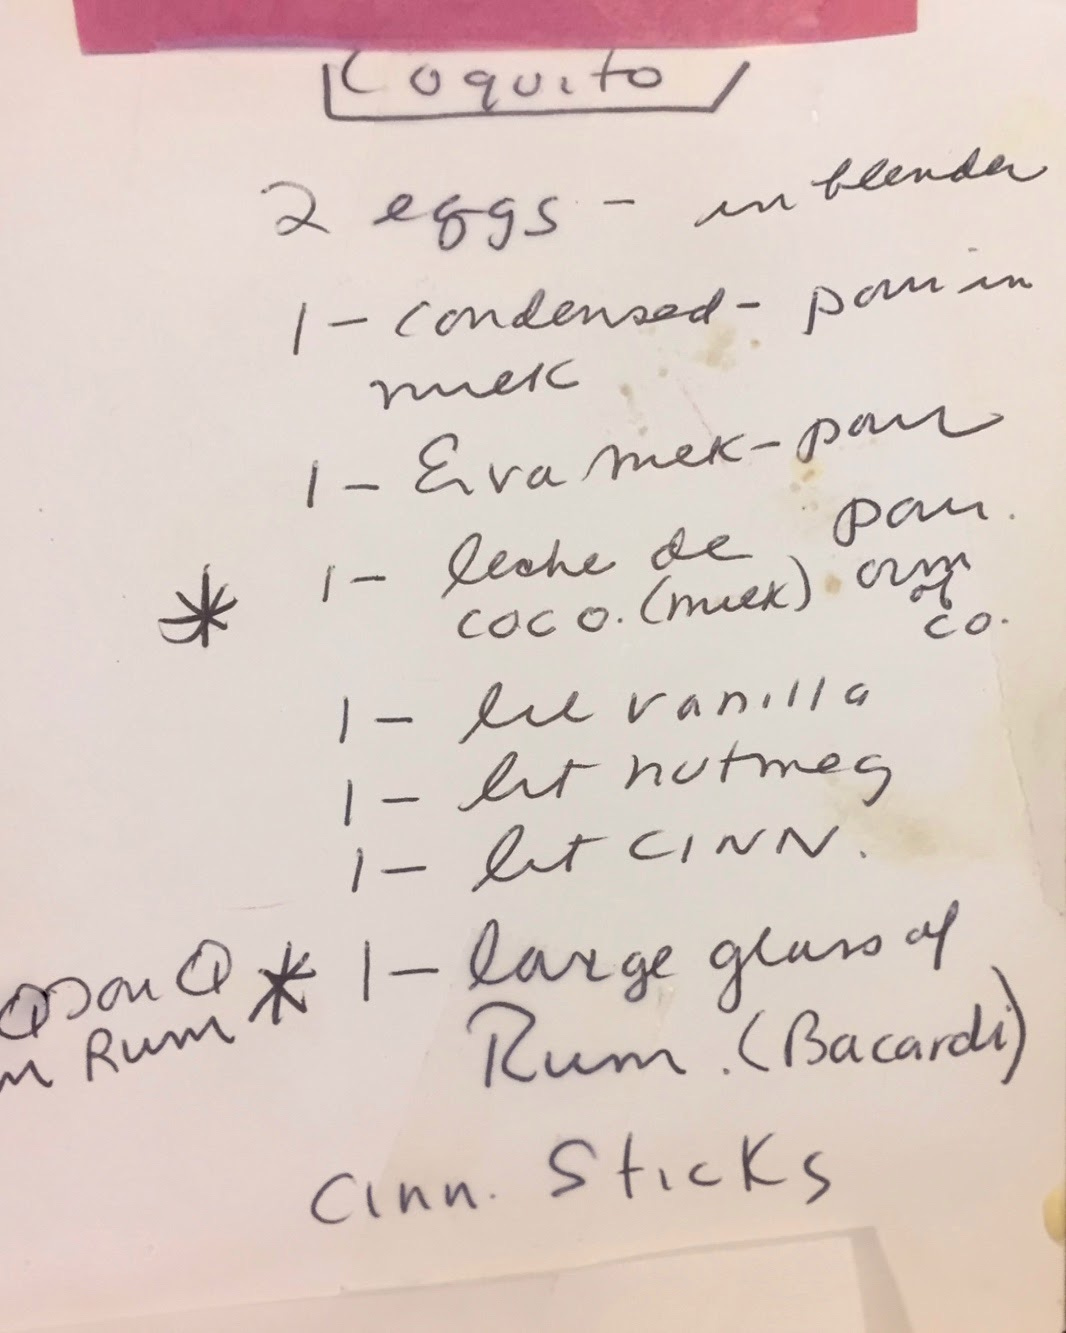 Coquito
2 eggs - in blender
1 - condensed - pour in
milk
1 - Eva milk - pour
1 - leche de pour.
coco. (milk) crm
of
co.
1 - lil vanilla
1 - bit nutmeg
1 - bit CINN.
* 1 - large glass of
Rum. (Bacardi)
Don Q
Rum
Cinn. Sticks